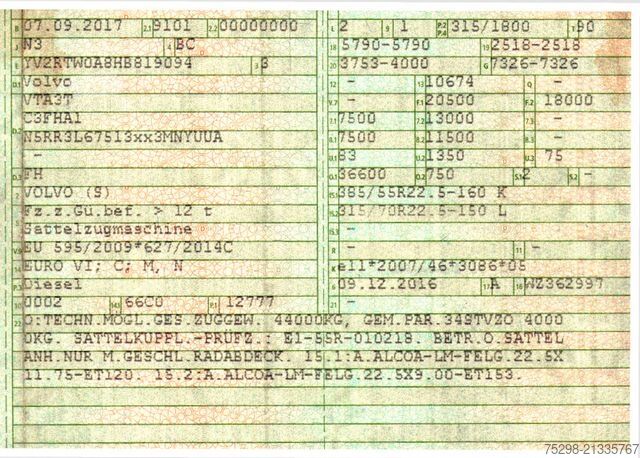 B 07.09.2017 2.1 9101 2.2 00000000 L 2 9 1 P.2 P.4 315/1800 T 90
J N3 4 BC 18 5790-5790 19 2518-2518
E YV2RTW0A8HB819094 3 8 20 3753-4000 G 7326-7326
D.1 Volvo 12 - 13 10674 Q -
VTA3T V.7 - F.1 20500 F.2 18000
D.2 C3FHA1 7.1 7500 7.2 13000 7.3 -
N5RR3L67513xx3MNYUUA 8.1 7500 8.2 11500 8.3 -
- U.1 83 U.2 1350 U.3 75
D.3 FH O.1 36600 O.2 750 S.1 2 S.2 -
2 VOLVO (S) 15.1 385/55R22.5-160 K
5 Fz.z.Gü.bef. > 12 t 15.2 315/70R22.5-150 L
Sattelzugmaschine 15.3 -
V.9 EU 595/2009*627/2014C R - 11 -
14 EURO VI; C; M, N K e11*2007/46*3086*05
P.3 Diesel 6 09.12.2016 17 A 16 WZ362997
10 0002 14.1 66C0 P.1 12777 21 -
22 O:TECHN.MÖGL.GES.ZUGGEW. 44000KG, GEM.PAR.34STVZO 4000
0KG. SATTELKUPPL.-PRÜFZ.: E1-55R-010218. BETR.O.SATTEL
ANH.NUR M.GESCHL.RADABDECK. 15.1:A.ALCOA-LM-FELG.22.5X
11.75-ET120. 15.2:A.ALCOA-LM-FELG.22.5X9.00-ET153.
75298-21335767